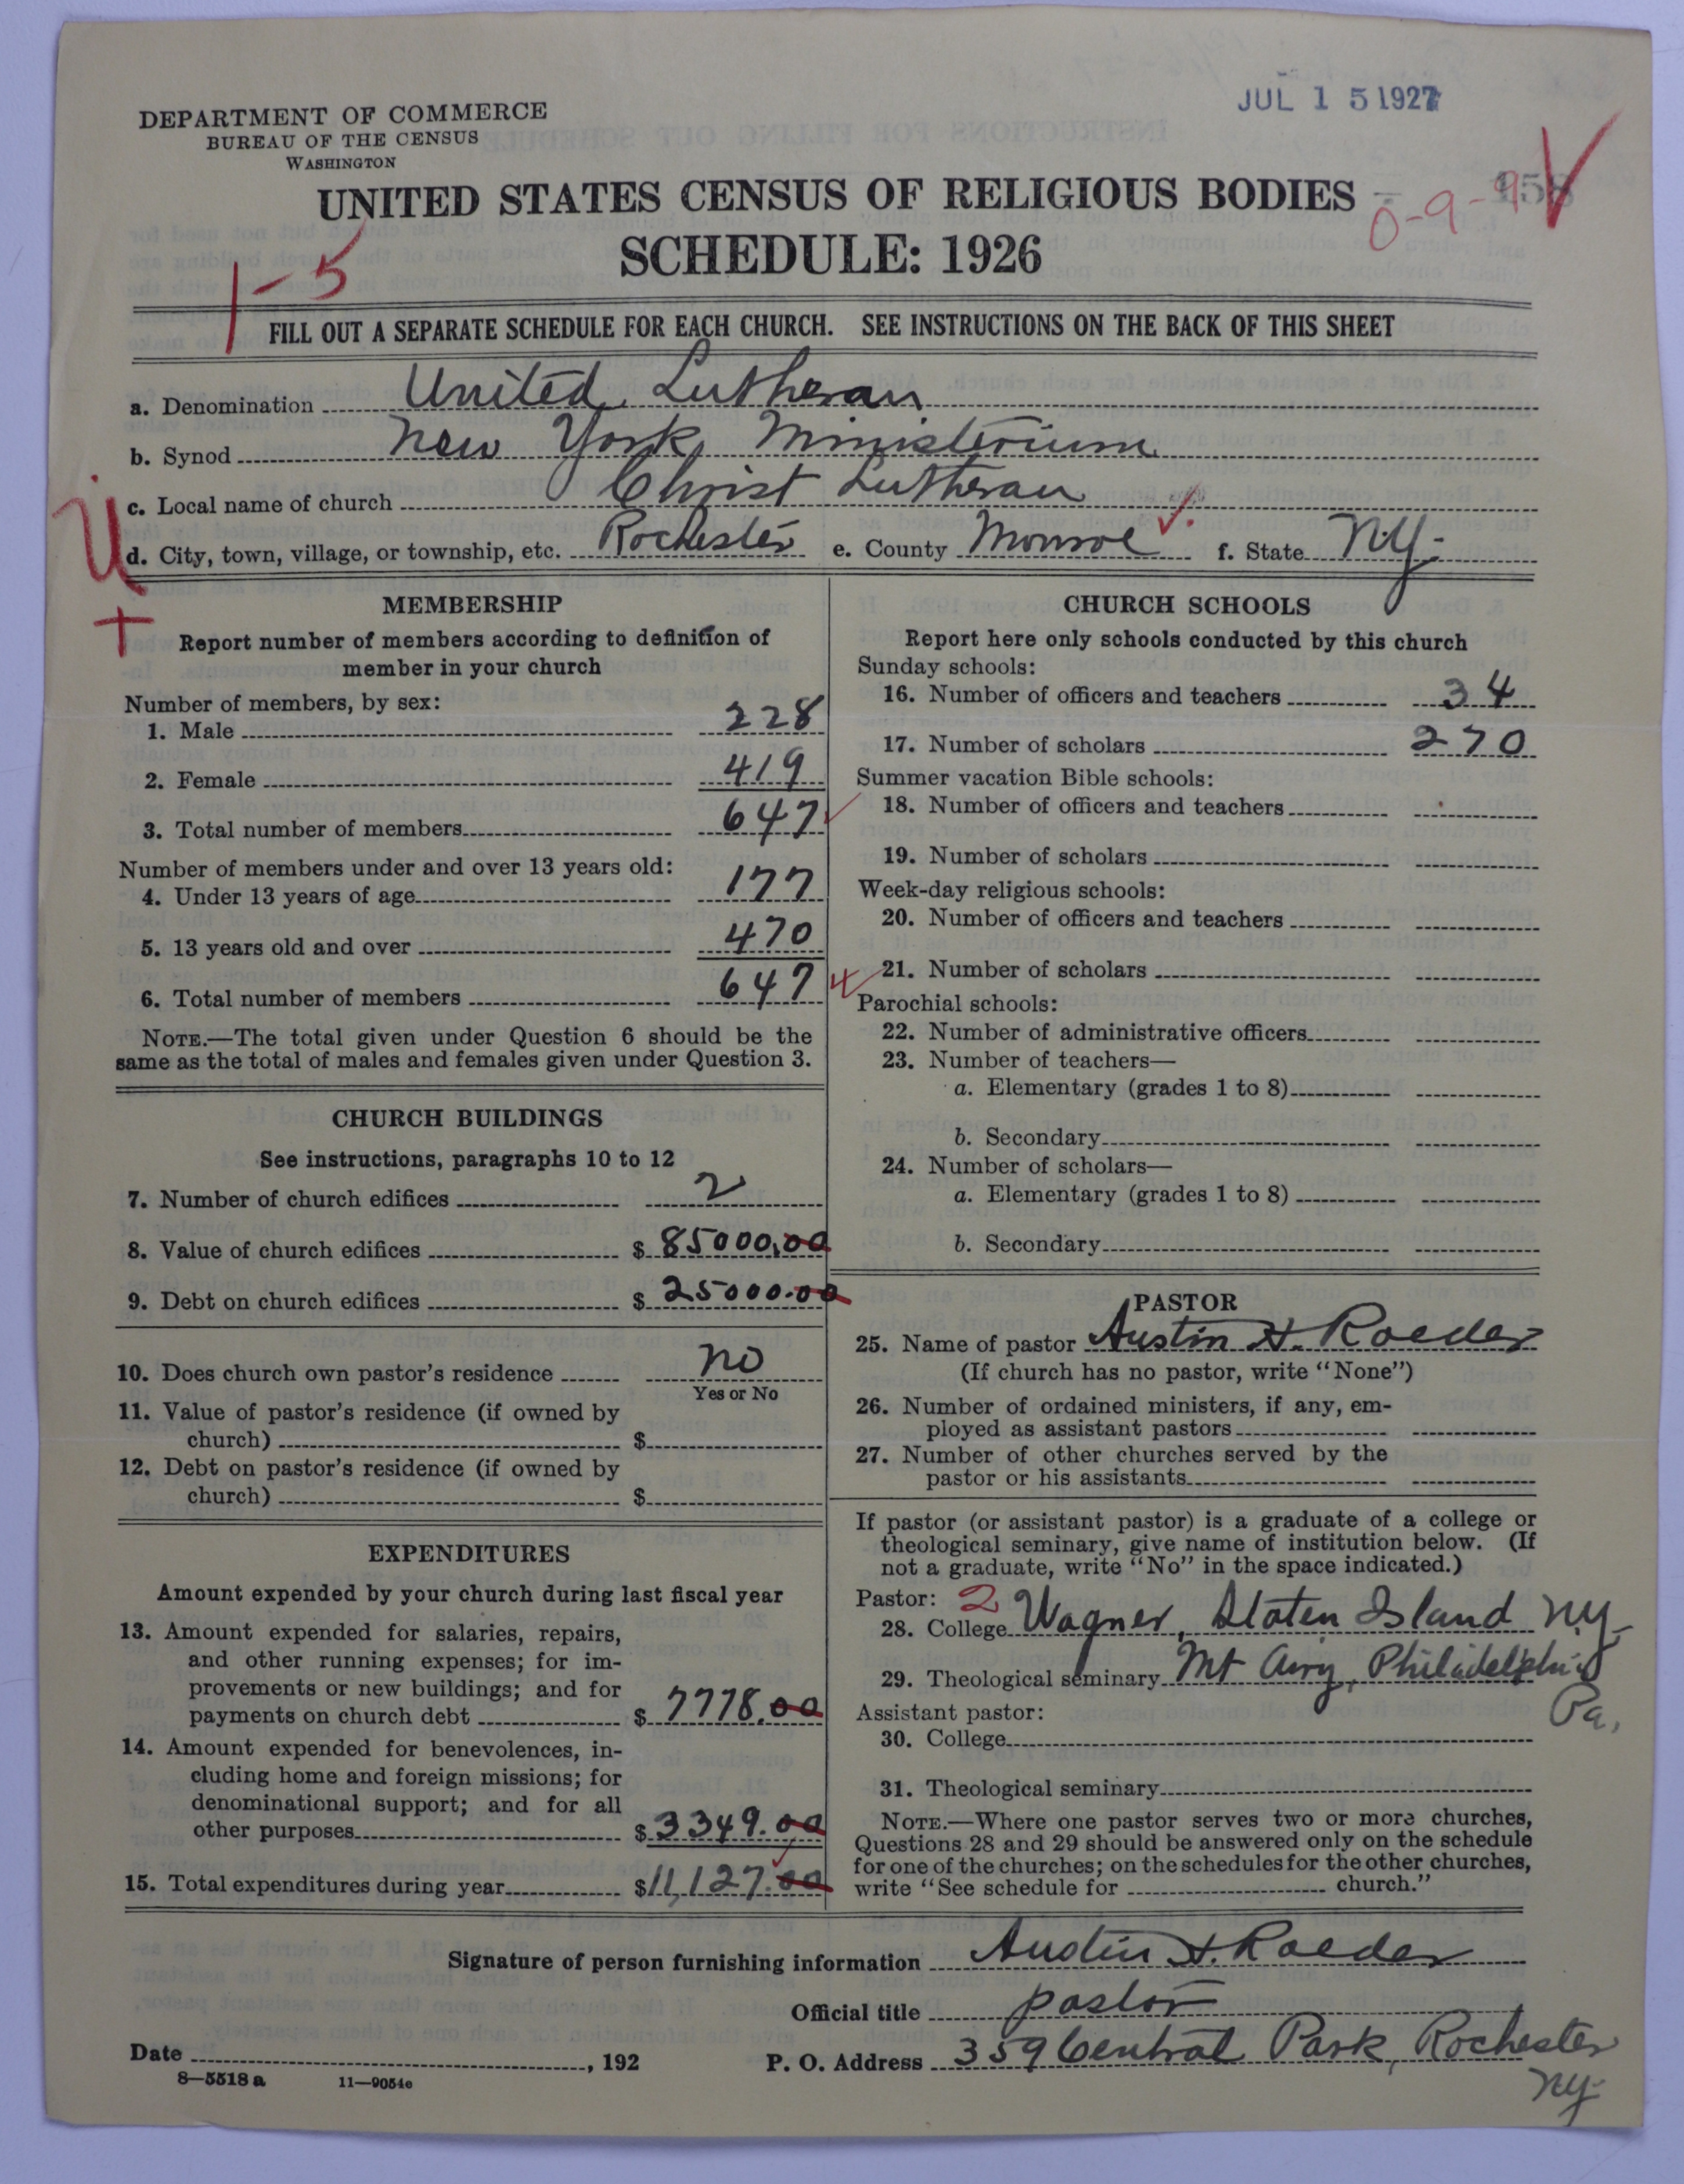 JUL 15 1927
DEPARTMENT OF COMMERCE
BUREAU OF THE CENSUS
WASHINGTON
UNITED STATES CENSUS OF RELIGIOUS BODIES
0-9-9
SCHEDULE: 1926
1-5
FILL OUT A SEPARATE SCHEDULE FOR EACH CHURCH. SEE INSTRUCTIONS ON THE BACK OF THIS SHEET
a. Denomination United Lutheran
b. Synod New York Ministerium
c. Local name of church Christ Lutheran
U
d. City, town, village, or township, etc. Rochester e. County Monroe f. State N.Y.
MEMBERSHIP
Report number of members according to definition of
member in your church
Number of members, by sex:
1. Male 228
2. Female 419
3. Total number of members 647
Number of members under and over 13 years old:
4. Under 13 years of age 177
5. 13 years old and over 470
6. Total number of members 647
NOTE.—The total given under Question 6 should be the
same as the total of males and females given under Question 3.
CHURCH BUILDINGS
See instructions, paragraphs 10 to 12
7. Number of church edifices 2
8. Value of church edifices $ 85000.00
9. Debt on church edifices $ 25000.00
10. Does church own pastor's residence no
Yes or No
11. Value of pastor's residence (if owned by
church) $
12. Debt on pastor's residence (if owned by
church) $
EXPENDITURES
Amount expended by your church during last fiscal year
13. Amount expended for salaries, repairs,
and other running expenses; for im-
provements or new buildings; and for
payments on church debt $ 7778.00
14. Amount expended for benevolences, in-
cluding home and foreign missions; for
denominational support; and for all
other purposes $ 3349.00
15. Total expenditures during year $ 11,127.00
CHURCH SCHOOLS
Report here only schools conducted by this church
Sunday schools:
16. Number of officers and teachers 34
17. Number of scholars 270
Summer vacation Bible schools:
18. Number of officers and teachers
19. Number of scholars
Week-day religious schools:
20. Number of officers and teachers
21. Number of scholars
Parochial schools:
22. Number of administrative officers
23. Number of teachers—
a. Elementary (grades 1 to 8)
b. Secondary
24. Number of scholars—
a. Elementary (grades 1 to 8)
b. Secondary
PASTOR
25. Name of pastor Austin H. Roeder
(If church has no pastor, write "None")
26. Number of ordained ministers, if any, em-
ployed as assistant pastors
27. Number of other churches served by the
pastor or his assistants
If pastor (or assistant pastor) is a graduate of a college or
theological seminary, give name of institution below. (If
not a graduate, write "No" in the space indicated.)
Pastor: 2
28. College Wagner, Staten Island N.Y.
29. Theological seminary Mt Airy, Philadelphia
Pa.
Assistant pastor:
30. College
31. Theological seminary
NOTE.—Where one pastor serves two or more churches,
Questions 28 and 29 should be answered only on the schedule
for one of the churches; on the schedules for the other churches,
write "See schedule for church."
Signature of person furnishing information Austin H. Roeder
Official title pastor
Date , 192
P. O. Address 359 Central Park, Rochester
N.Y.
8—5518 a 11—9054e